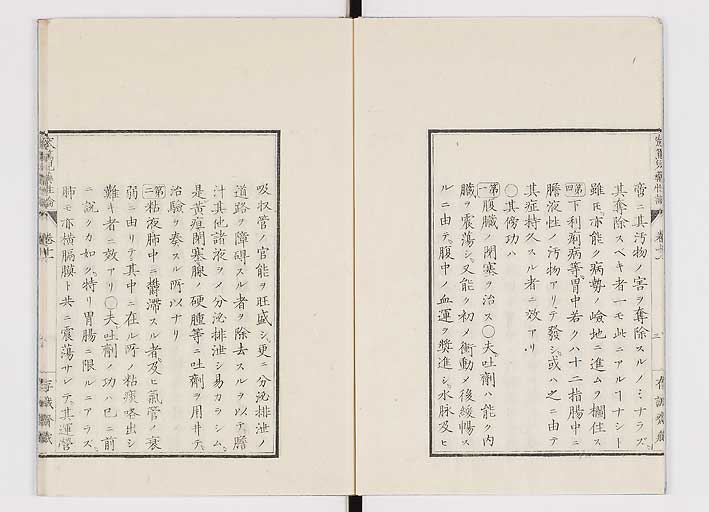 啻ニ其汚物ノ害ヲ奪除スルノミナラズ
其奪除スベキ者一モ此ニアルヿナシト
雖モ亦能ク病勢ノ嶮地ニ進ムヲ欄住ス
第四 下利痢病等胃中若クハ十二指腸中ニ
膽液性ノ汚物アリテ發シ或ハ之ニ由テ
其症持久スル者ニ效アリ
〇其傍功ハ
第一 腹臓ノ閉塞ヲ治ス〇夫吐劑ハ能ク内
臓ヲ震蕩シ又能ク初メ衝動メ後緩暢ス
ルニ由テ腹中ノ血運ヲ奬進シ水脉及ヒ
吸収管ノ官能ヲ旺盛シ更ニ分泌排泄ノ
道路ヲ障碍スル者ヲ除去スルヲ以テ膽
汁其他諸液ヲメ分泌排泄シ易カラシム
是黄疸閉塞腺ノ硬腫等ニ吐劑ヲ用井テ
治驗ヲ奏スル所以ナリ
第二 粘液肺中ニ欝滯スル者及ヒ氣管ノ衰
弱ニ由リテ其中ニ在ル所ノ粘痰咯出シ
難キ者ニ效アリ〇夫吐劑ノ功ハ已ニ前
ニ説クカ如ク特リ胃腸ニ限ルニアラズ
肺モ亦横膈膜ト共ニ震蕩サレテ其運營
卷十